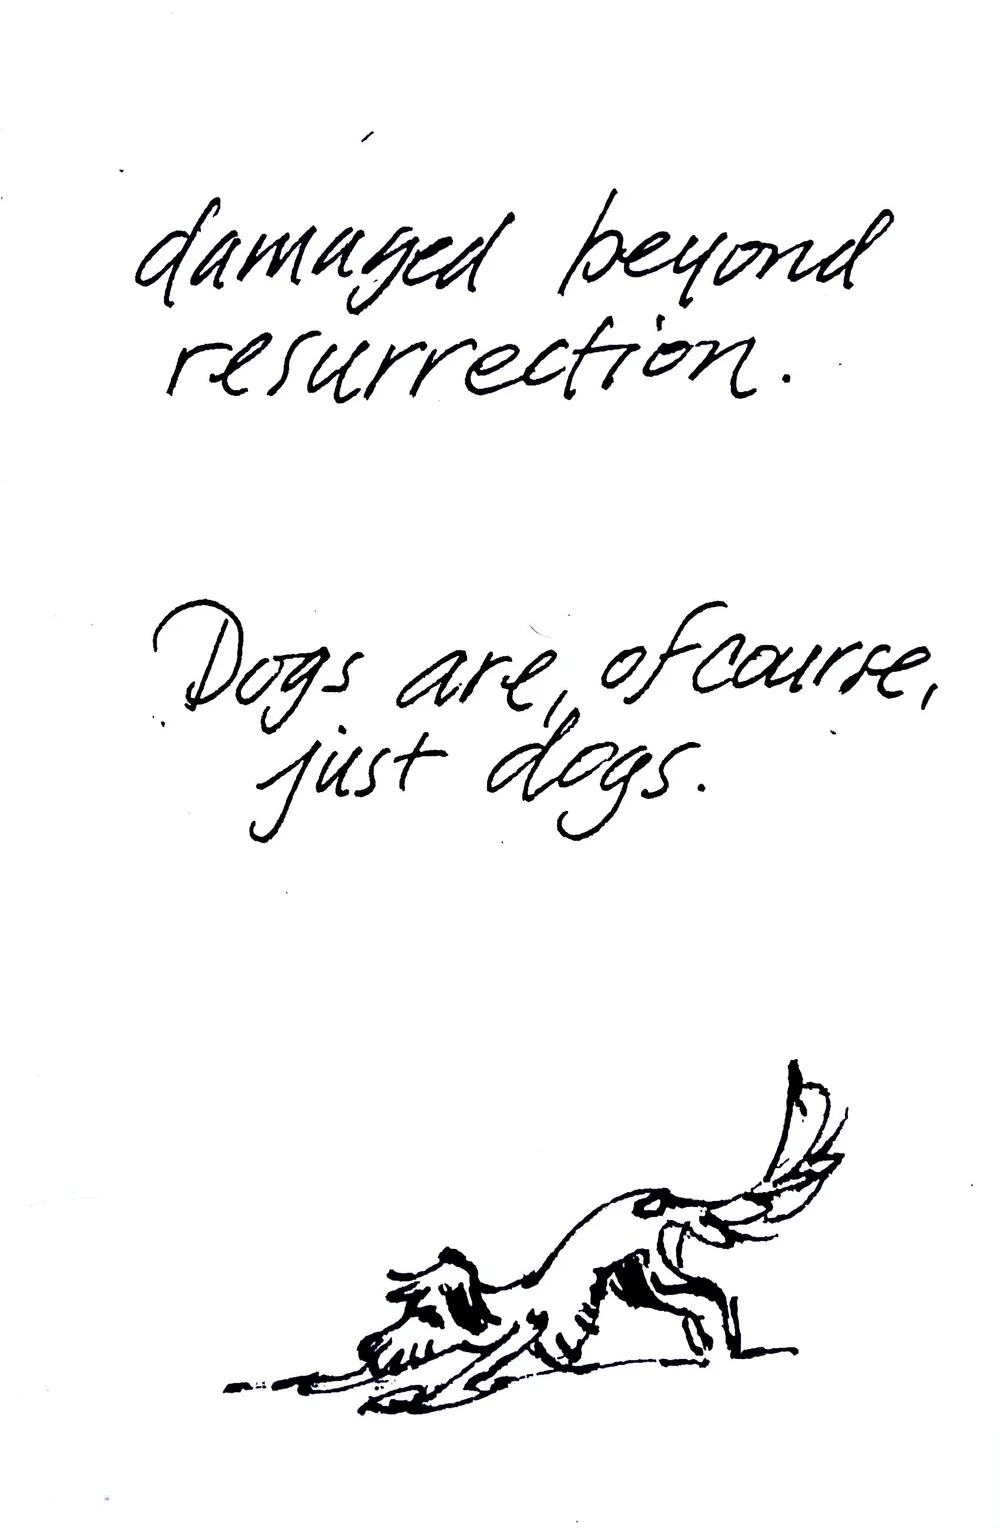 damaged beyond
resurrection.
Dogs are, of course,
just dogs.